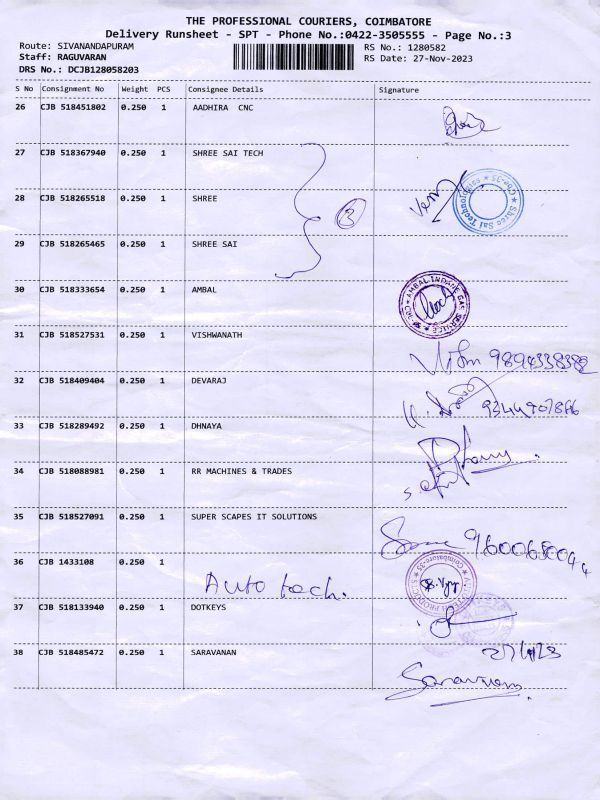 THE PROFESSIONAL COURIERS, COIMBATORE
Delivery Runsheet - SPT - Phone No.:0422-3505555 - Page No.:3
Route: SIVANANDAPURAM
RS No.: 1280582
Staff: RAGUVARAN
RS Date: 27-Nov-2023
DRS No.: DCJB128058203
S No Consignment No Weight PCS Consignee Details Signature
26 CJB 518451802 0.250 1 AADHIRA CNC
27 CJB 518367940 0.250 1 SHREE SAI TECH
28 CJB 518265518 0.250 1 SHREE
3
29 CJB 518265465 0.250 1 SHREE SAI
30 CJB 518333654 0.250 1 AMBAL
AMBAL INDANE GAS SERVICE
31 CJB 518527531 0.250 1 VISHWANATH
9894338382
32 CJB 518409404 0.250 1 DEVARAJ
9344907866
33 CJB 518289492 0.250 1 DHNAYA
34 CJB 518088981 0.250 1 RR MACHINES & TRADES
35 CJB 518527091 0.250 1 SUPER SCAPES IT SOLUTIONS
36 CJB 1433108 0.250 1 Auto tech.
Coimbatore-35
37 CJB 518133940 0.250 1 DOTKEYS
38 CJB 518485472 0.250 1 SARAVANAN
Saravanan